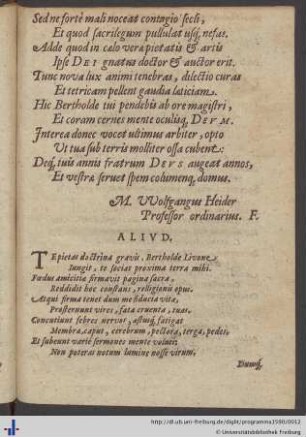 Sed ne fortè mali noceat contagio secli,
Et quod sacrilegum pullulat usq, nefas.
Adde quod in calo vera pietatis & artis
Ipse DEI gnatus doctor & auctor erit.
Tunc nova lux animi tenebras, dilectio curas
Et tetricam pellent gaudia lætitiam.
Hic Bertholde tui pendebis ab ore magistri,
Et coram cernes mente oculisq, DEVM.
Interea donec vocet ultimus arbiter, opto
Ut tua sub terris molliter ossa cubent:
Deq, tuis annis fratrum DEVS augeat annos,
Et vestræ servet spem columenq, domus.
M. VVolfgangus Heider
Professor ordinarius. F.
ALIVD.
TE pietas doctrina gravis, Bertholde Livone
Iungit, te sociat proxima terra mihi.
Fœdus amicitiæ firmavit pagina sacra,
Reddidit hoc constans, relligionis opus.
Atqui firma tenet dum mendacia vita,
Prosternunt vires, fata cruenta, tuas.
Concutiunt febres nervos, æstusq, fatigat
Membra, caput, cerebrum, pectora, terga, pedes.
Et subeunt variè sermones mente
Non poteras notum lumine nosse virum.
http://dl.ub.uni-freiburg.de/diglit/programma1590/0012
© Universitätsbibliothek Freiburg